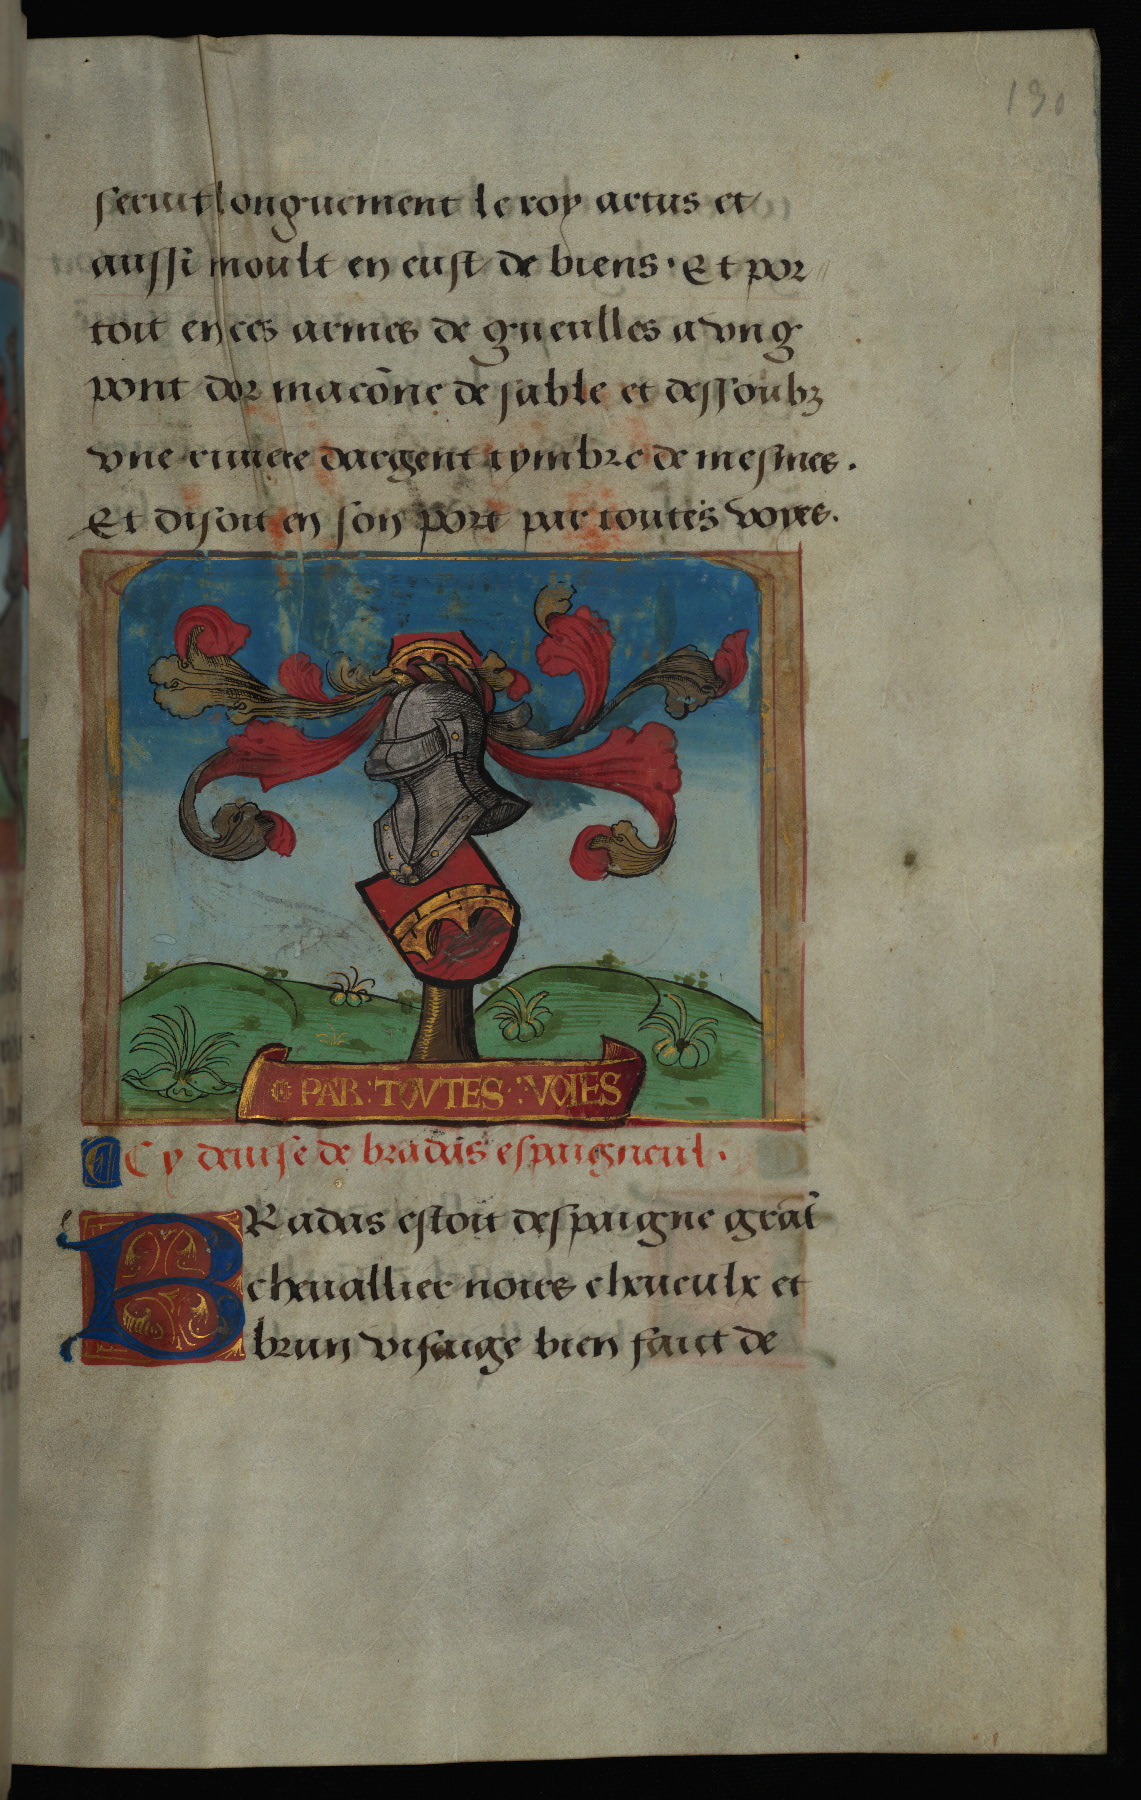 130
seruit longuement le roy artus et
aussi moult en eust de biens · Et por
toit en ces armes de gueulles a vng
pont dor macōne de sable et dessoubz
vne riuiere dargent tymbre de mesmes .
Et disoit en son port par toutes voyes .
PAR : TOVTES : VOIES
Cy deuise de bradas espaigneul ·
BRadas estoit despaigne grāt
cheuallier noirs cheueulx et
brun visaige bien faict de